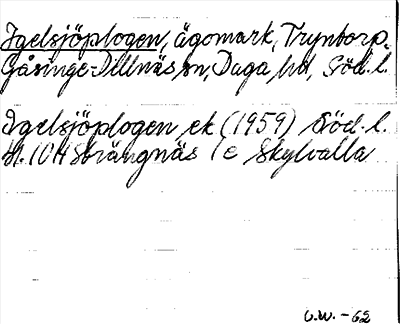 Igelsjöplogen, ägomark, Tryntorp,
Gåsinge-Dillnäs sn, Daga hd, Söd. l.
Igelsjöplogen ek (1959) Söd. l.
bl. 10H Strängnäs 1e Skylvalla
U.W. - 62